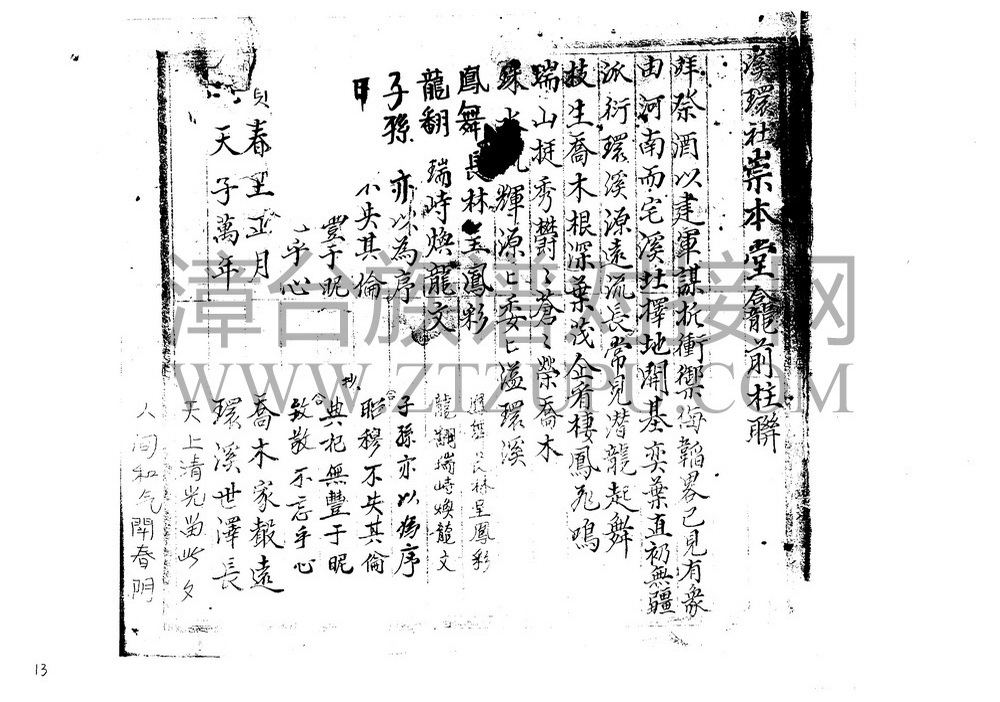 溪環社崇本堂龕前柱聯
祭酒以建軍謀折衝禦侮韜畧已見有衆
由河南而宅溪社擇地開基奕葉直初無疆
派衍環溪源遠流長常見潛龍起舞
枝生喬木根深葉茂企看棲鳳飛鳴
瑞山挺秀欝〻蒼〻榮喬木
珠水 輝源匕委匕溢環溪
鳳舞長林呈鳳彩
龍翻瑞時煥龍文
子孫亦以為序
不失其倫
豐于昵
乎心
春王正月
天子萬年
舞長林呈鳳彩
龍翻瑞時煥龍文
子孫亦以為序
昭穆不失其倫
典祀無豐于昵
致敬不忘乎心
喬木家聲遠
環溪世澤長
天上清光留此夕
人间和气闹春阴
漳台族谱对接网
WWW.ZTZUPU.COM
13